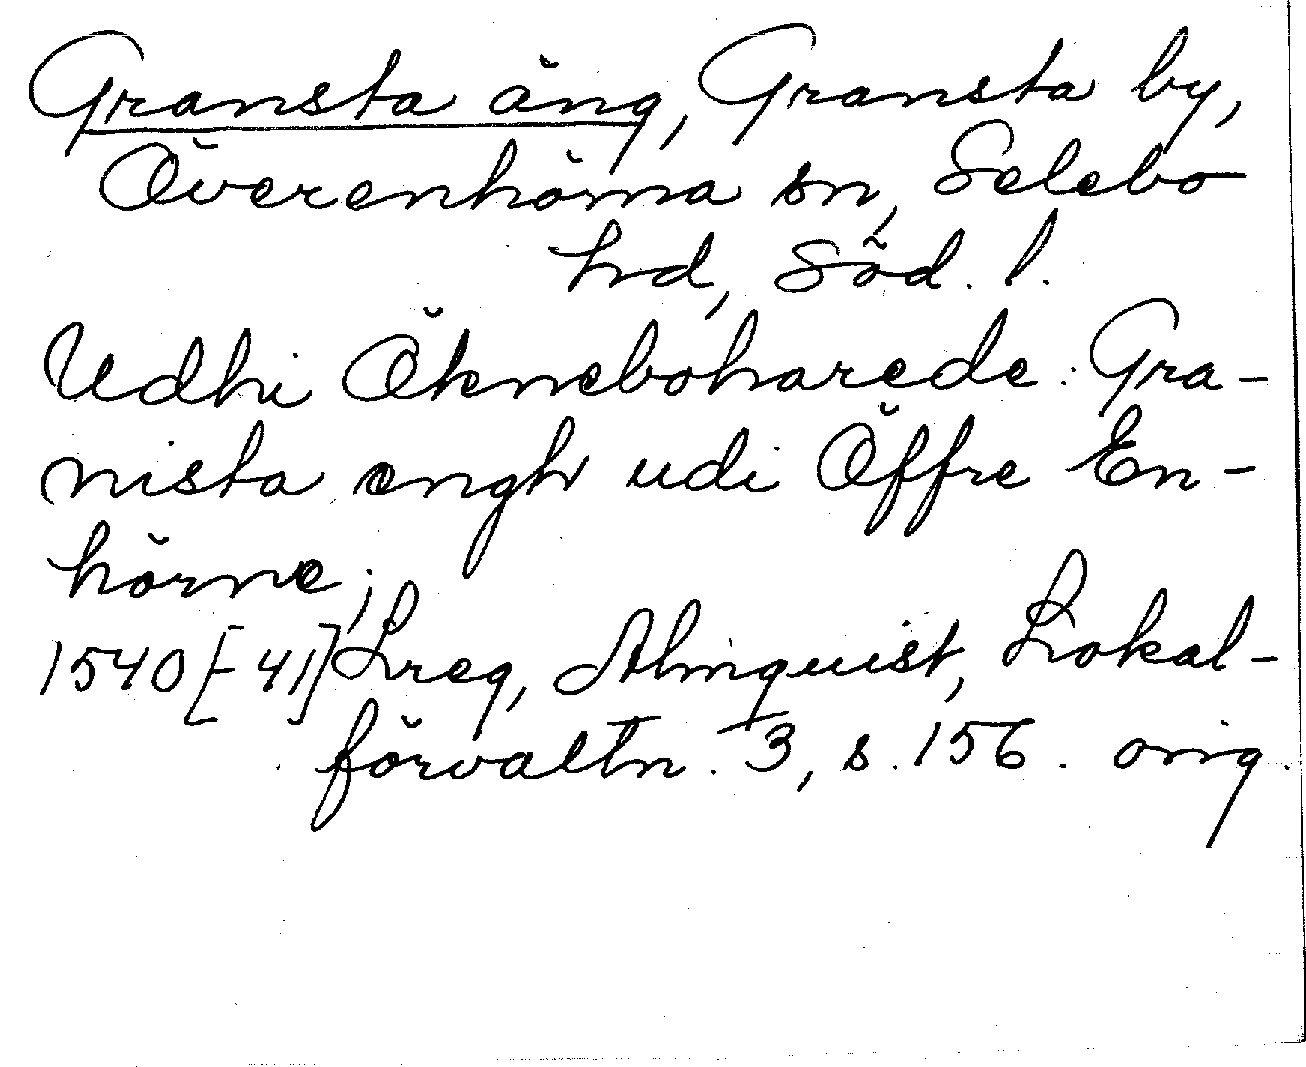 Gransta äng, Gransta by,
Överenhörna sn, Selebo
hd, Söd. l.
Udhi Ökneboharede: Gra-
nista engh udi Öffre En-
hörne;
1540[-41] Lreg, Almquist, Lokal-
förvaltn. 3, s. 156. orig.